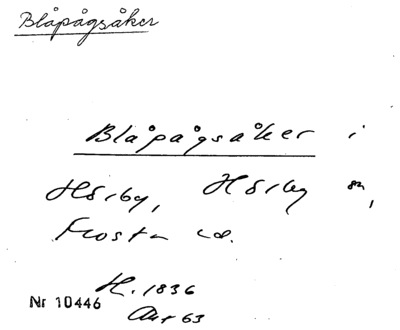 Blåpågsåker
Blåpågsåker i
Hörby, Hörby sn,
Frosta hd.
H. 1836
Nr 10446
Akt 63